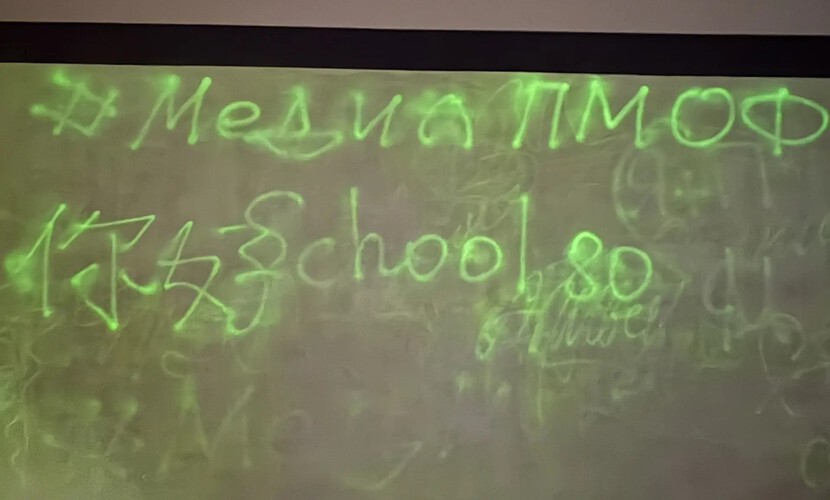 #Медиа ПМОФ
你好 School 80